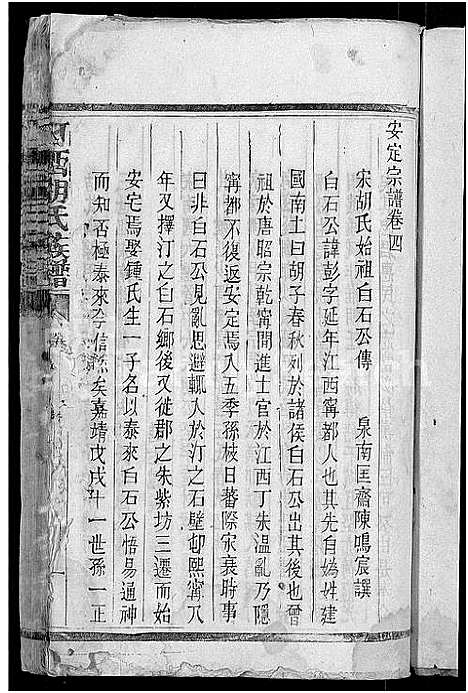 安定宗譜卷四
宋胡氏始祖白石公傳　泉南匡齋陳鳴宸譔
白石公諱彭字延年江西寧都人也其先自媯姓建
國南土曰胡子春秋列於諸侯白石公出其後也曾
祖於唐昭宗乾寧間進士官於江西丁朱溫亂乃隱
寧都不復返安定焉入五季孫枝日蕃際宋衰時事
日非白石公見亂思避輒入於汀之石壁邨熙寧八
年又擇汀之白石鄉後又徙郡之朱紫坊三遷而始
安宅焉娶鍾氏生一子名以泰來白石公悟易通神
而知否極泰來孚信縣矣嘉靖戊戌十一世孫一正
西胡氏族譜